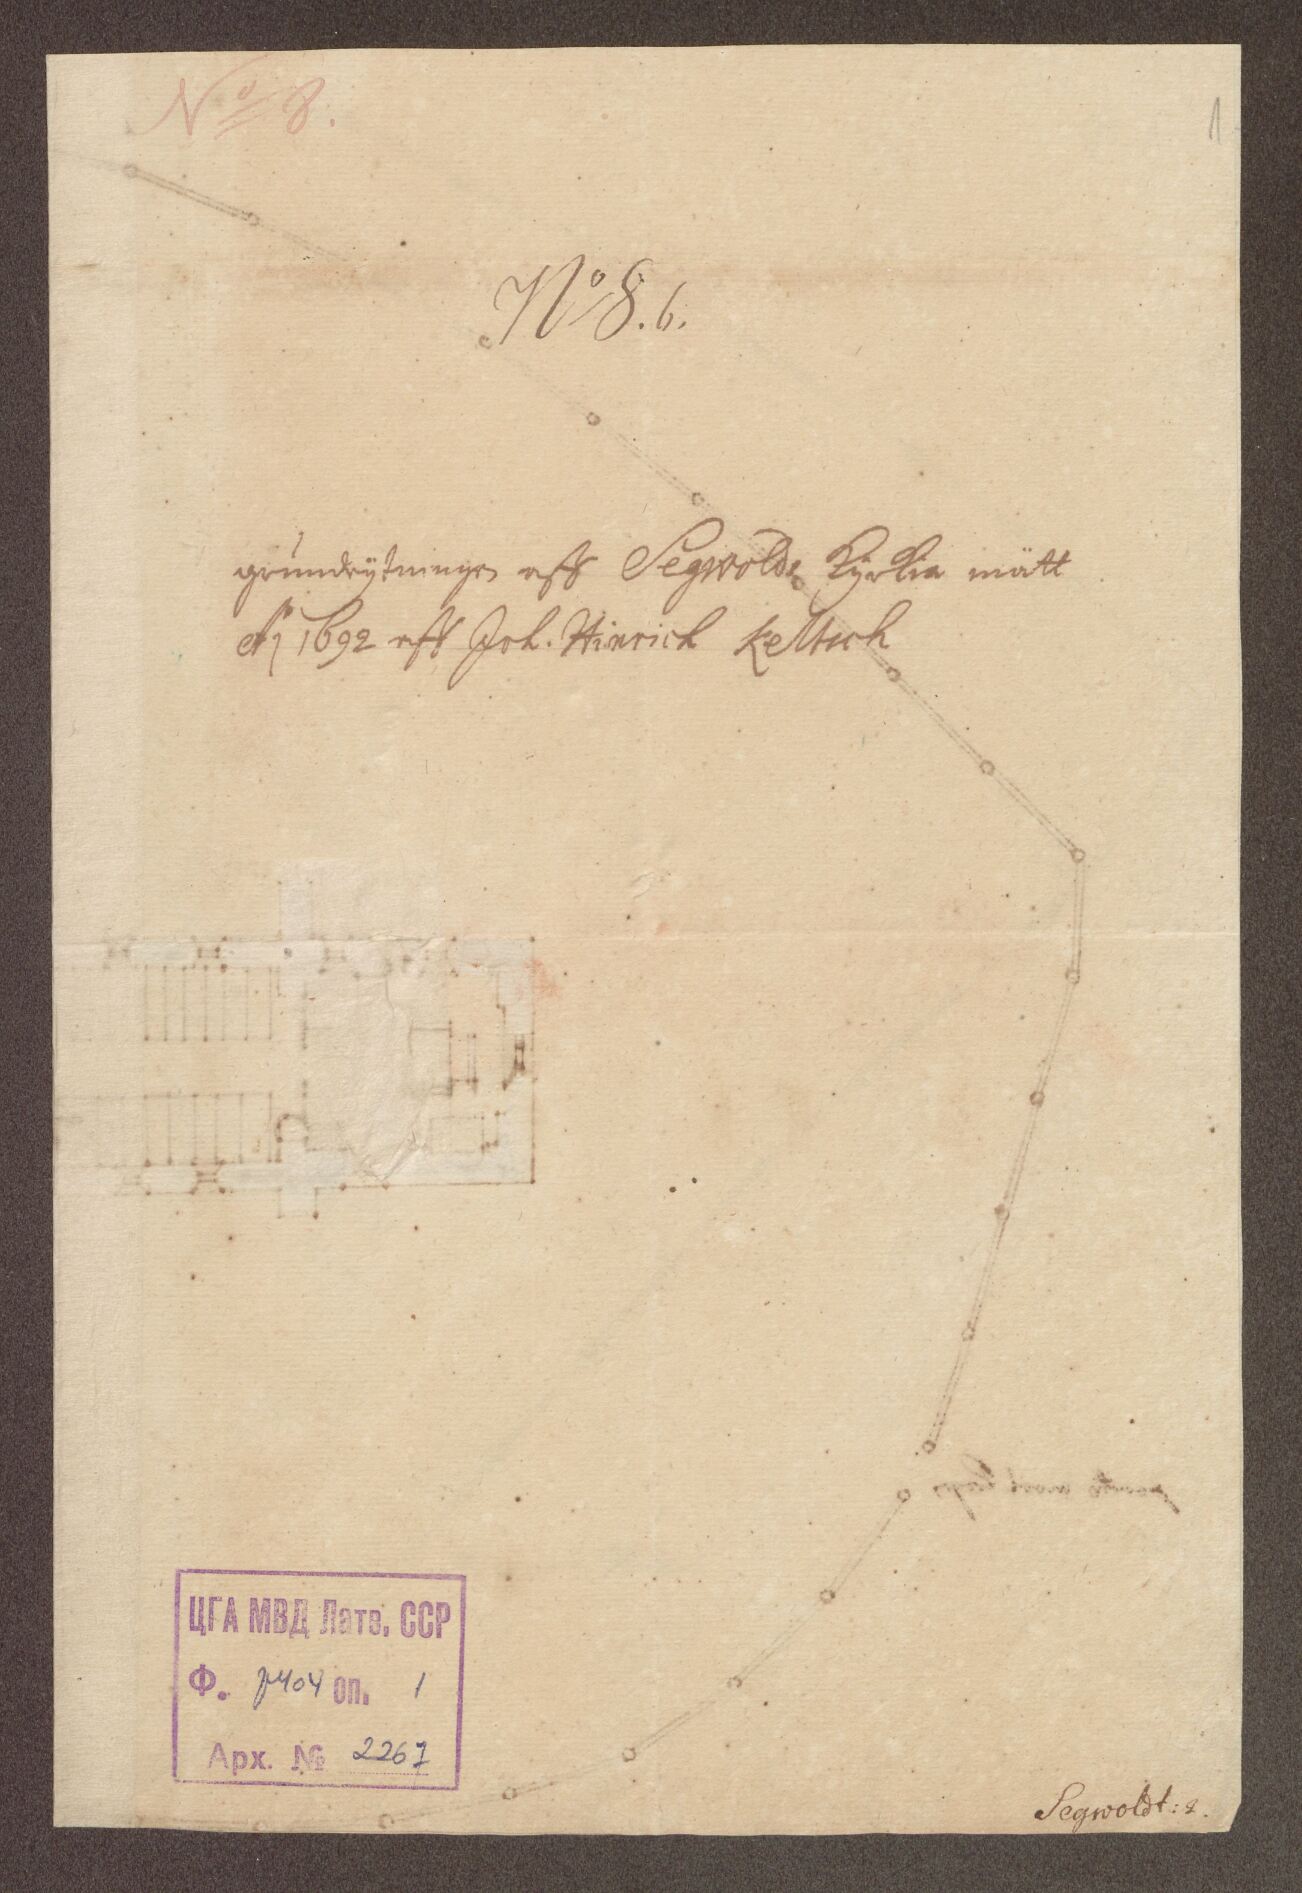 No 8.
1
No 8. 6.
grundrytningen aff Segwolds Kyrkia mätt
Ao 1692 aff Joh. Hinrich Keltsch
ЦГА МВД Латв. ССР
Ф. 7404 оп. 1
Арх. № 2267
Segwoldt: 2.